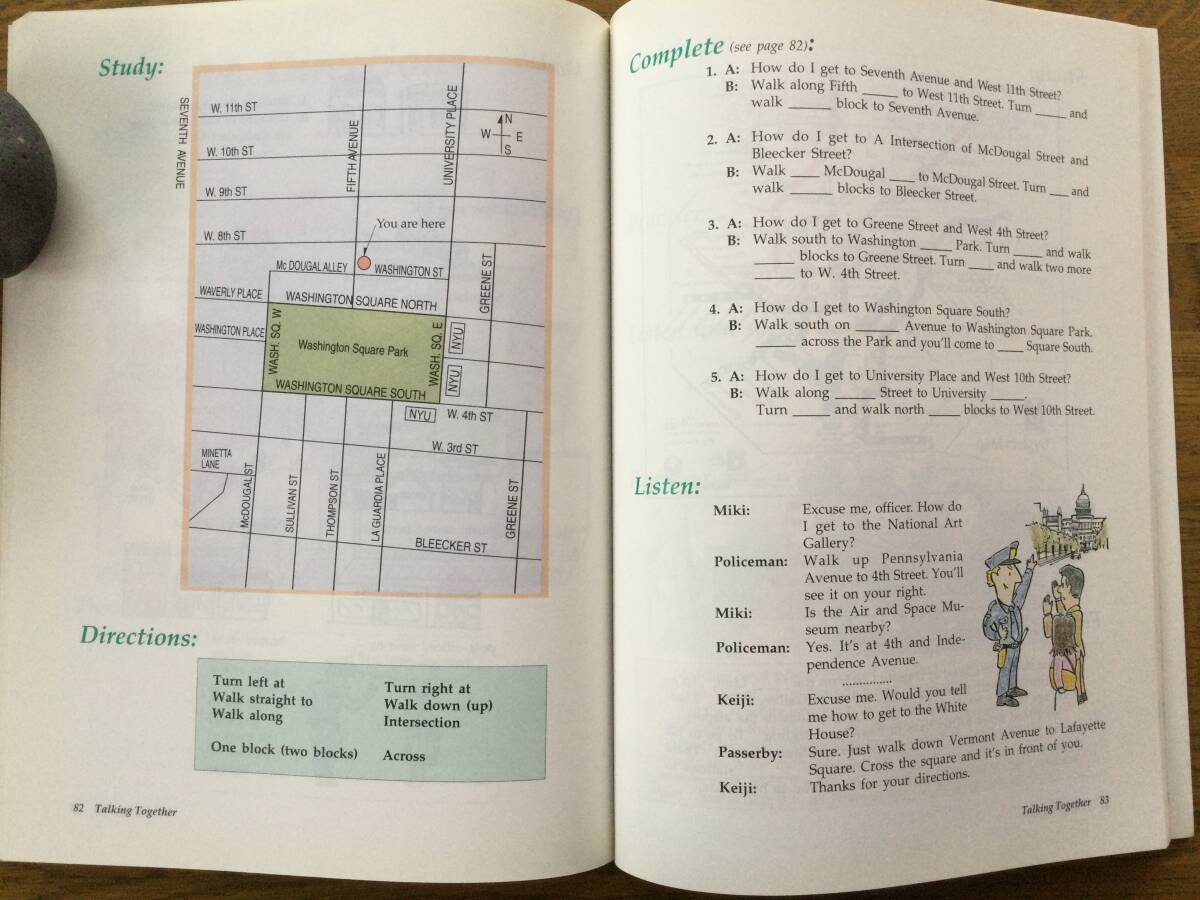 Study:
SEVENTH AVENUE
W. 11th ST
W. 10th ST
W. 9th ST
W. 8th ST
FIFTH AVENUE
UNIVERSITY PLACE
N
W E
S
You are here
Mc DOUGAL ALLEY
WASHINGTON ST
GREENE ST
WAVERLY PLACE
WASHINGTON SQUARE NORTH
WASHINGTON PLACE
WASH. SQ. W
Washington Square Park
WASH. SQ. E
NYU
NYU
WASHINGTON SQUARE SOUTH
NYU
W. 4th ST
W. 3rd ST
MINETTA
LANE
McDOUGAL ST
SULLIVAN ST
THOMPSON ST
LA GUARDIA PLACE
GREENE ST
BLEECKER ST
Directions:
Turn left at
Walk straight to
Walk along
One block (two blocks)
Turn right at
Walk down (up)
Intersection
Across
82 Talking Together
Complete (see page 82):
1. A: How do I get to Seventh Avenue and West 11th Street?
B: Walk along Fifth _____ to West 11th Street. Turn _____ and
walk ______ block to Seventh Avenue.
2. A: How do I get to A Intersection of McDougal Street and
Bleecker Street?
B: Walk ____ McDougal ____ to McDougal Street. Turn ___ and
walk ______ blocks to Bleecker Street.
3. A: How do I get to Greene Street and West 4th Street?
B: Walk south to Washington _____ Park. Turn ____ and walk
______ blocks to Greene Street. Turn ____ and walk two more
______ to W. 4th Street.
4. A: How do I get to Washington Square South?
B: Walk south on ______ Avenue to Washington Square Park.
______ across the Park and you'll come to ____ Square South.
5. A: How do I get to University Place and West 10th Street?
B: Walk along ______ Street to University _____.
Turn ______ and walk north _____ blocks to West 10th Street.
Listen:
Miki: Excuse me, officer. How do
I get to the National Art
Gallery?
Policeman: Walk up Pennsylvania
Avenue to 4th Street. You'll
see it on your right.
Miki: Is the Air and Space Mu-
seum nearby?
Policeman: Yes. It's at 4th and Inde-
pendence Avenue.
...............
Keiji: Excuse me. Would you tell
me how to get to the White
House?
Passerby: Sure. Just walk down Vermont Avenue to Lafayette
Square. Cross the square and it's in front of you.
Keiji: Thanks for your directions.
Talking Together 83